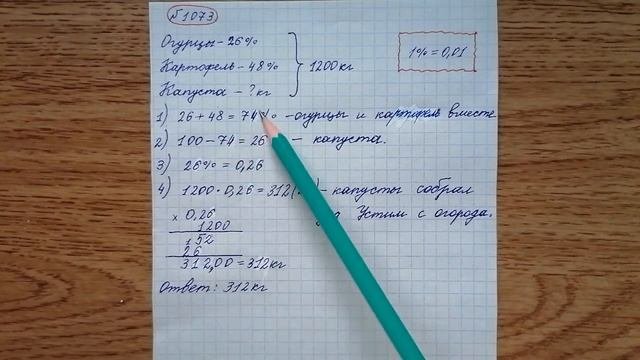 №1073
Огурцы – 26%
Картофель – 48%
1200кг
Капуста – ? кг
1% = 0,01
1) 26 + 48 = 74% – огурцы и картофель вместе
2) 100 – 74 = 26 – капуста.
3) 26% = 0,26
4) 1200 · 0,26 = 312( – капусты собрал
Устим с огорода.
× 0,26
1200
152
26
312,00 = 312кг
Ответ: 312кг